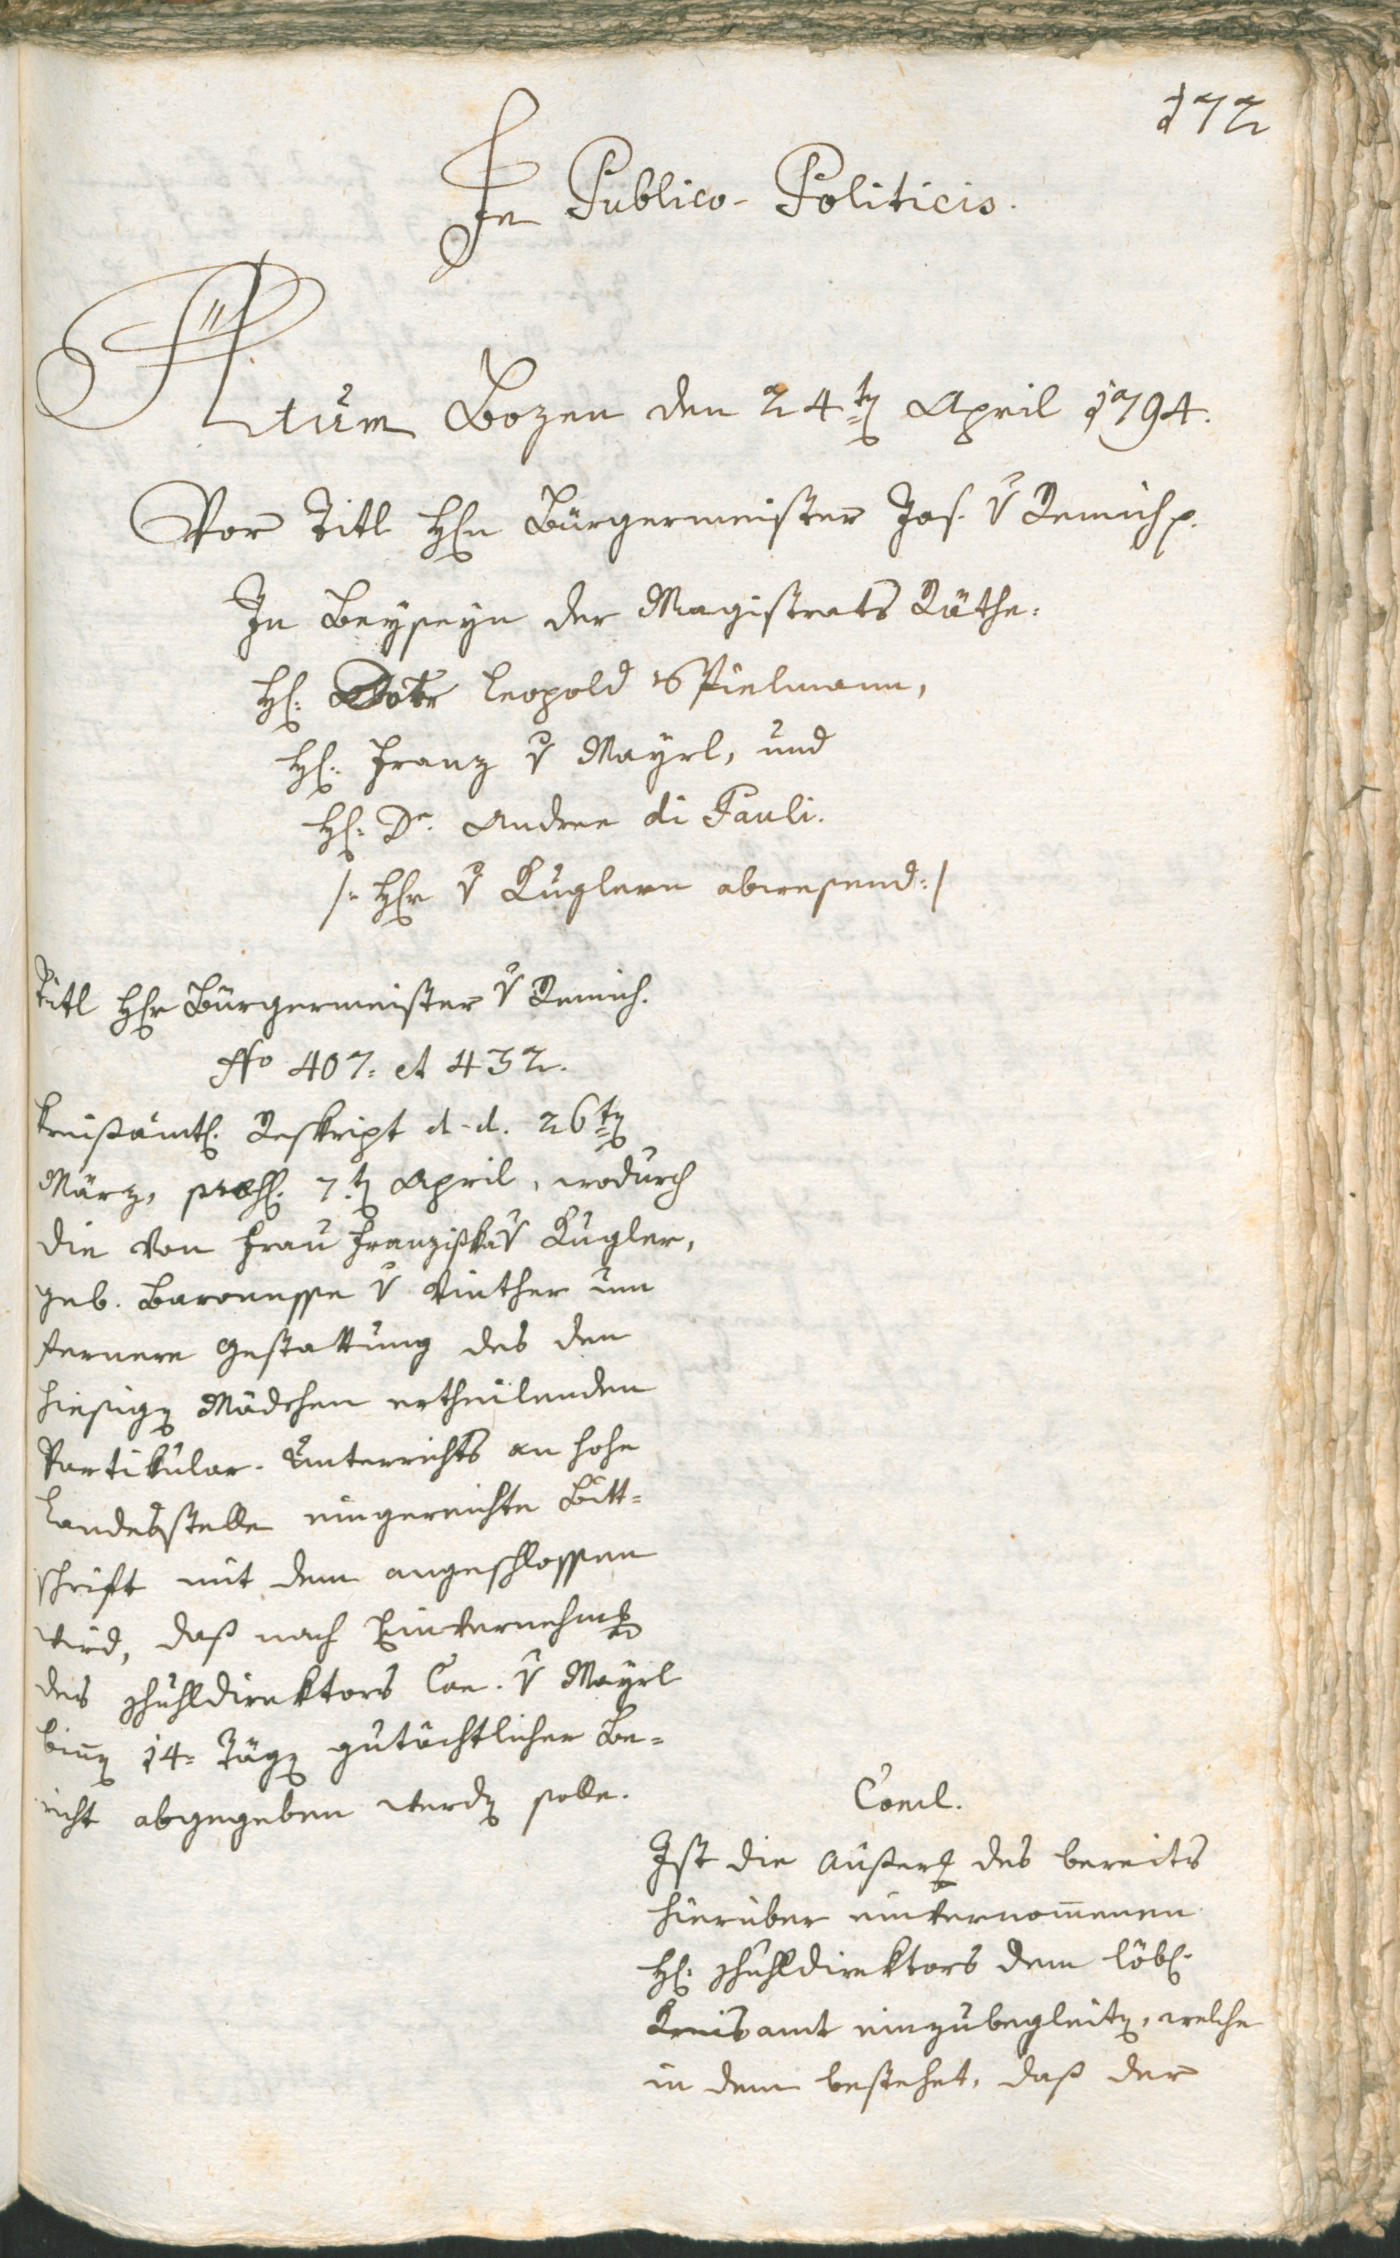 172
In Publico-Politicis.
Actum Bozen den 24t April 1794.
Vor Titl Hhn Bürgermeister Jos. v Remich p.
In Beyseyn der Magistrats Räthe:
H: Dotr Leopold v Pielmann,
H: Franz v Mayrl, und
H: Dr. Andree di Pauli.
/: Hhr v Kuglern abwesend :/
Titl Hhr Bürgermeister v Remich.
No 407: et 432.
Kreißämtl. Reskript d-d. 26t
März, 7t April, wodurch
die von Frau Franziska v Kugler,
geb. Baronesse v Vinther um
fernere Gestattung des den
hiesigen Mädchen ertheilenden
Partikular-Unterrichts an hohe
Landesstelle eingereichte Bitt=
schrift mit dem angeschlossen
wird, daß nach Einvernehmung
des Schuhldirektors Can. v Mayrl
binnen 14= Tägen gutächtlicher Be=
richt abgegeben werden solle.
Concl.
Ist die Äußerung des bereits
hierüber einvernommenen
H: Schuhldirektors dem löbl.
Kreisamt einzubegleiten, welche
in dem bestehet, daß der